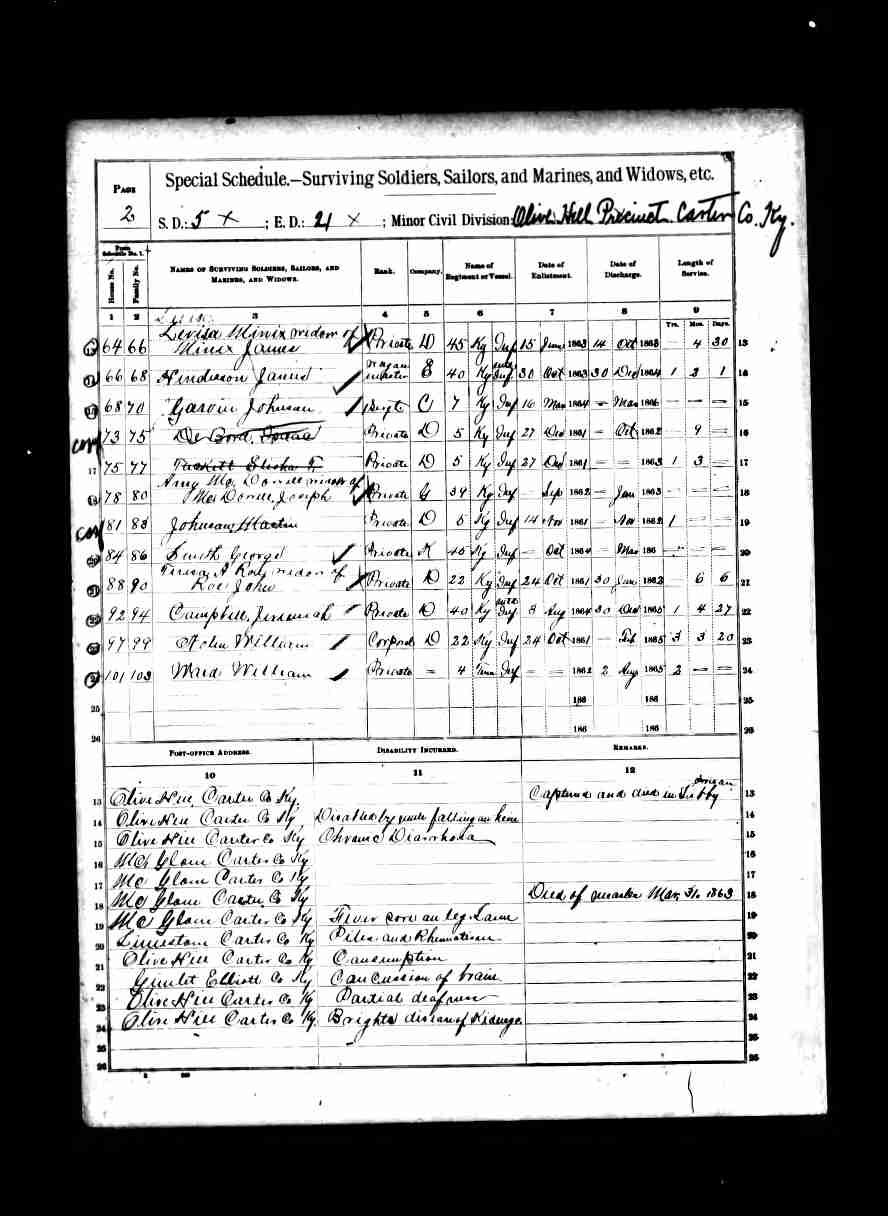 PAGE 2
Special Schedule.—Surviving Soldiers, Sailors, and Marines, and Widows, etc.
S. D.: 5 × ; E. D.: 21 × ; Minor Civil Division: Olive Hill Precinct Carter Co. Ky.
From Schedule No. 1.
House No. Family No. NAMES OF SURVIVING SOLDIERS, SAILORS, AND MARINES, AND WIDOWS. Rank. Company. Name of Regiment or Vessel. Date of Enlistment. Date of Discharge. Length of Service.
1 2 3 4 5 6 7 8 9
Yrs. Mos. Days.
Levisa Minix widow of
64 66 Minix James Private D 45 Ky Inf 15 June 1863 14 Oct 1863 – 4 30 13
66 68 James E 40 Ky Inf 30 Oct 1863 30 Dec 1864 1 2 1 14
68 70 Garvin Johnson Sergt C 7 Ky Inf 16 Mar 1864 = Mar 1866 – – – 15
73 75 De Bord Private D 5 Ky Inf 27 Dec 1861 – Oct 1862 – 9 – 16
17 75 77 Private D 5 Ky Inf 27 Dec 1861 – – 1863 1 3 – 17
Amy widow of
78 80 Joseph Private G 39 Ky Inf – Sep 1862 – Jan 1863 – – – 18
81 83 Johnson Private D 5 Ky Inf 14 Nov 1861 – Nov 1862 1 – – 19
84 86 Smith George Private K 40 Ky Inf – Oct 1864 – Mar 186 – – – 20
Roe widow of
88 90 Roe John Private D 22 Ky Inf 24 Oct 1861 30 Jun 1862 – 6 6 21
92 94 Campbell, Jeremiah Private D 40 Ky Inf 3 Aug 1864 30 Dec 1865 1 4 27 22
97 99 William Corporal D 22 Ky Inf 24 Oct 1861 – Feb 1865 3 3 20 23
101 103 Ward William Private = 4 Tenn Inf – – 1862 2 Aug 1865 2 – – 24
25 186 186 25
26 186 186 26
POST-OFFICE ADDRESS. DISABILITY INCURRED. REMARKS.
10 11 12
13 Olive Hill Carter Co Ky. Captured and died in Libby 13
14 Olive Hill Carter Co Ky Disabled by mule falling on him 14
15 Olive Hill Carter Co Ky Chronic Diarrhoea 15
16 Mc Glone Carter Co Ky 16
17 Mc Glone Carter Co Ky 17
18 Mc Glone Carter Co Ky Died of measles Mar, 1863 18
19 Mc Glone Carter Co Ky Fever sore on leg. Lame 19
20 Limestone Carter Co Ky Piles and Rheumatism 20
21 Olive Hill Carter Co Ky Consumption 21
22 Gimlet Elliott Co Ky Concussion of brain 22
23 Olive Hill Carter Co Ky Partial deafness 23
24 Olive Hill Carter Co Ky. Brights disease of Kidneys 24
25 25
26 26